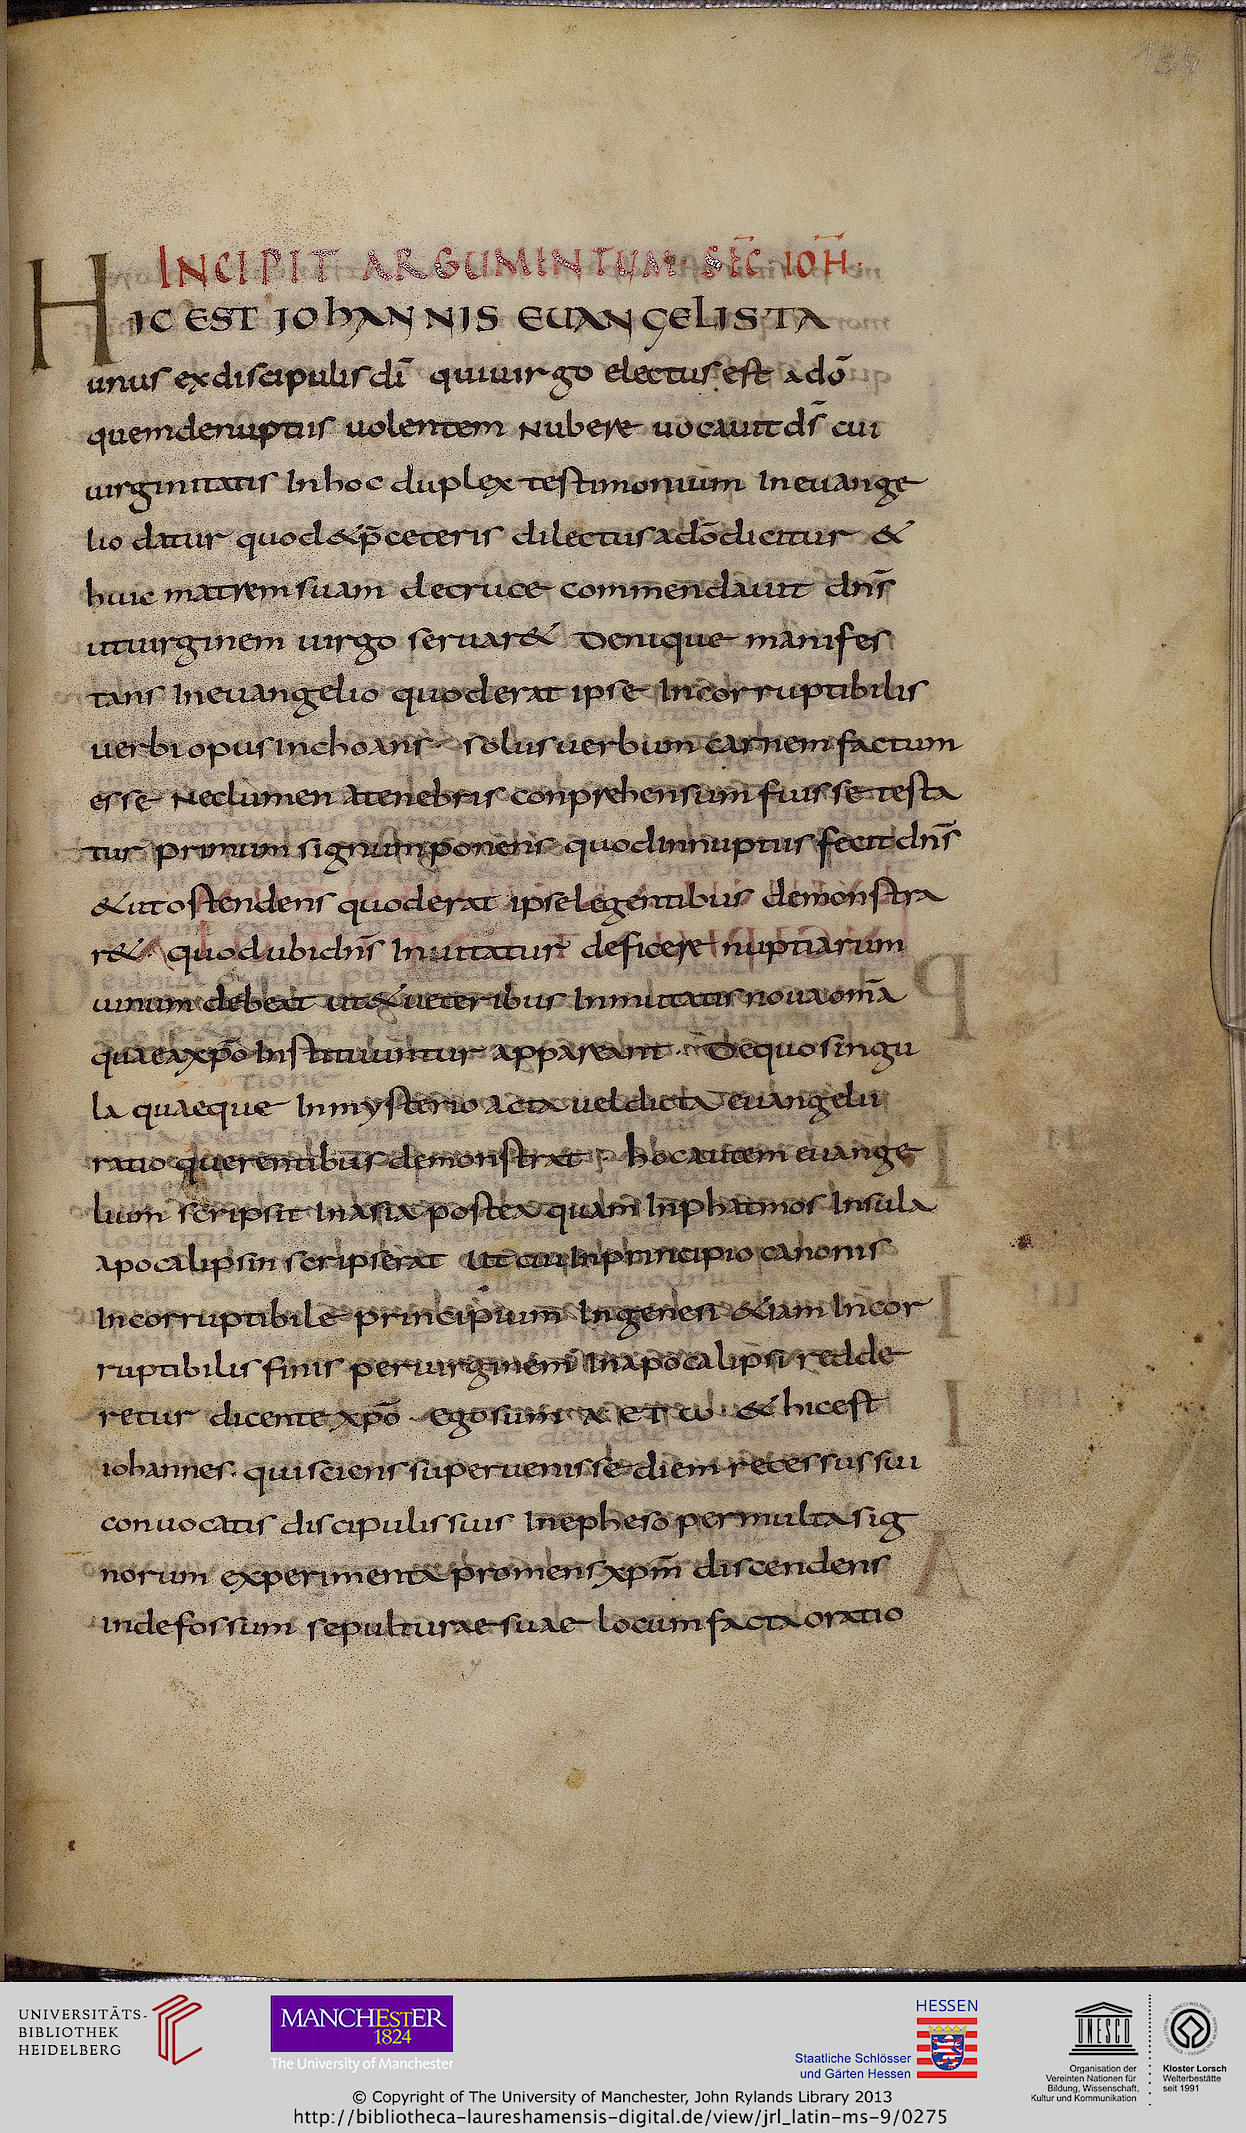 184
INCIPIT ARGUMENTUM SEC̄ IOH̄.
HIC EST IOHANNIS EUANGELISTA
unus exdiscipulis dī quiuirgo electus est adō
quemdenuptiis uolentem nubere uocauit dš cui
uirginitatis Inhoc duplex testimonium Ineuange
lio datur quod&p̄ceteris dilectus adōdicitur &
huic matrem suam decruce commendauit dnš
utuirginem uirgo seruar& Denique manifes
tans Ineuangelio quoderat ipse Incorruptibilis
uerbi opus inchoans · solus uerbum carnem factum
esse Neclumen atenebris conprehensum fuisse testa
tur primum signum ponens quodinnuptiis fecit dnš
&utostendens quoderat ipse legentibus demonstra
r& · quod ubi dnš Inuitatur deficere nuptiarum
uinum debeat ut&ueteribus Inmutatis nouaomā
quaeaxpō Instituuntur appareant · Dequo singu
la quaeque Inmysterio acta uel dicta euangelii
ratio querentibus demonstrat · hocautem euange
lium scripsit Inasia postea quam Inphatmos Insula
apocalipsin scripserat Ut cui Inprincipio canonis
Incorruptibile principium Ingenesi &iam Incor
ruptibilis finis peruirginem Inapocalipsi redde
retur dicente xpō · Ego sum A ET ω · & hicest
iohannes · quisciens superuenisse diem recessus sui
conuocatis discipulis suis Inepheso permulta sig
norum experimenta promens xpm̄ discendens
indefossum sepulturae suae locum facta oratio
UNIVERSITÄTS-
BIBLIOTHEK
HEIDELBERG
MANCHESTER
1824
The University of Manchester
HESSEN
Staatliche Schlösser
und Gärten Hessen
UNESCO
Organisation der
Vereinten Nationen für
Bildung, Wissenschaft,
Kultur und Kommunikation
Kloster Lorsch
Welterbestätte
seit 1991
© Copyright of The University of Manchester, John Rylands Library 2013
http://bibliotheca-laureshamensis-digital.de/view/jrl_latin-ms-9/0275